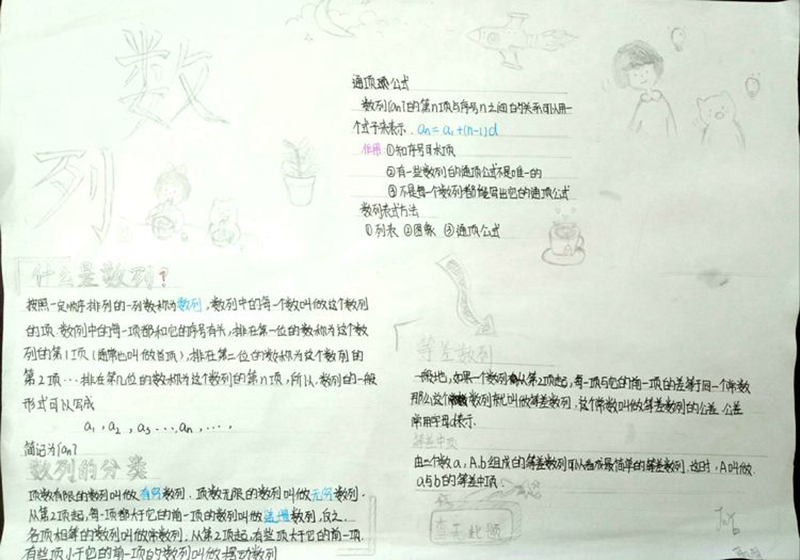 数
列
什么是数列?
按照一定顺序排列的一列数称为数列,数列中的每一个数叫做这个数列
的项.数列中的每一项都和它的序号有关,排在第一位的数称为这个数
列的第1项(通常也叫做首项),排在第二位的数称为这个数列的
第2项…排在第n位的数称为这个数列的第n项,所以,数列的一般
形式可以写成
a₁,a₂,a₃…,aₙ,…,
简记为{aₙ}
数列的分类
项数有限的数列叫做有穷数列.项数无限的数列叫做无穷数列.
从第2项起,每一项都大于它的前一项的数列叫做递增数列,反之…
各项相等的数列叫做常数列,从第2项起,有些项大于它的前一项,
有些项小于它的前一项的数列叫做摆动数列
通项公式
数列{aₙ}的第n项与序号n之间的关系可以用一
个式子来表示.aₙ=a₁+(n-1)d
作用:①知序号可求项
②有一些数列的通项公式不是唯一的
③不是每一个数列都能写出它的通项公式
数列表式方法
①列表 ②图象 ③通项公式
等差数列
一般地,如果一个数列从第2项起,每一项与它的前一项的差等于同一个常数
那么这个数列就叫做等差数列,这个常数叫做等差数列的公差.公差
常用字母d表示.
等差中项
由三个数a,A,b组成的等差数列可以看成最简单的等差数列.这时,A叫做
a与b的等差中项
查无此题